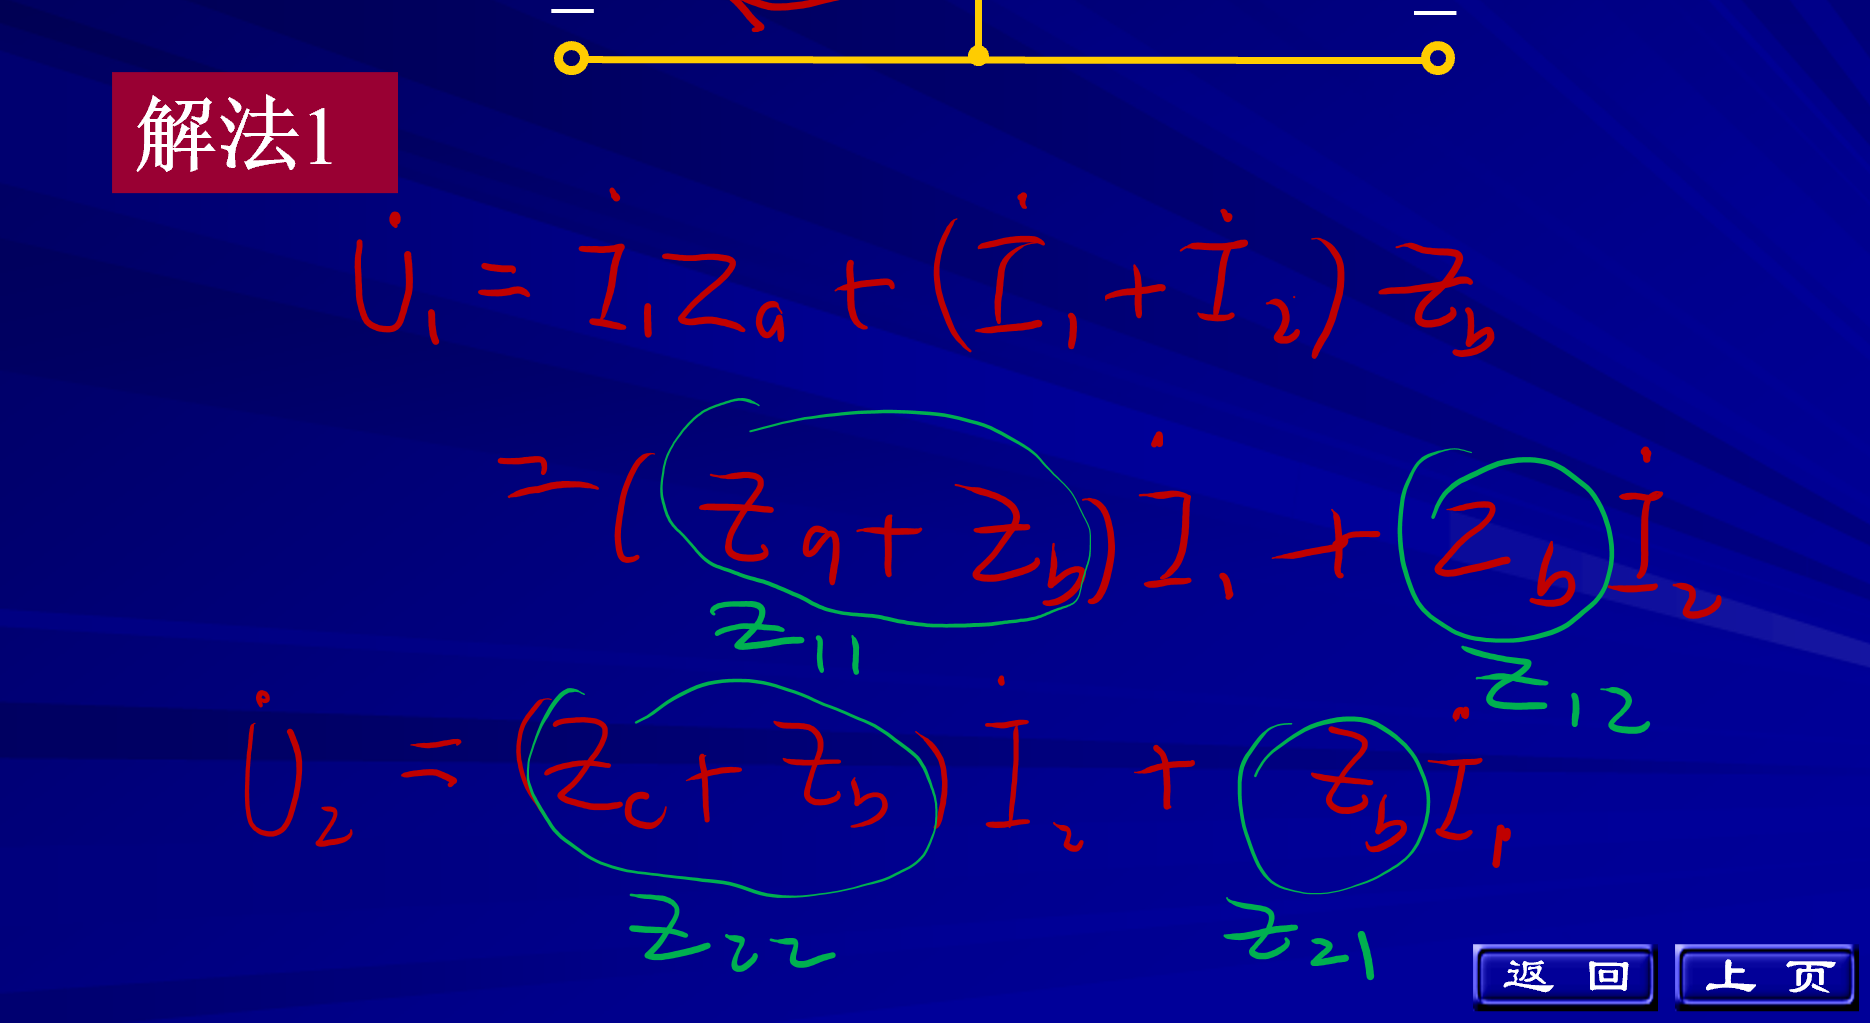 — —
解法1
U̇₁ = İ₁Zₐ + (İ₁ + İ₂) Z_b
= (Zₐ + Z_b) İ₁ + Z_b İ₂
Z₁₁ Z₁₂
U̇₂ = (Z_c + Z_b) İ₂ + Z_b İ₁
Z₂₂ Z₂₁
返 回 上 页